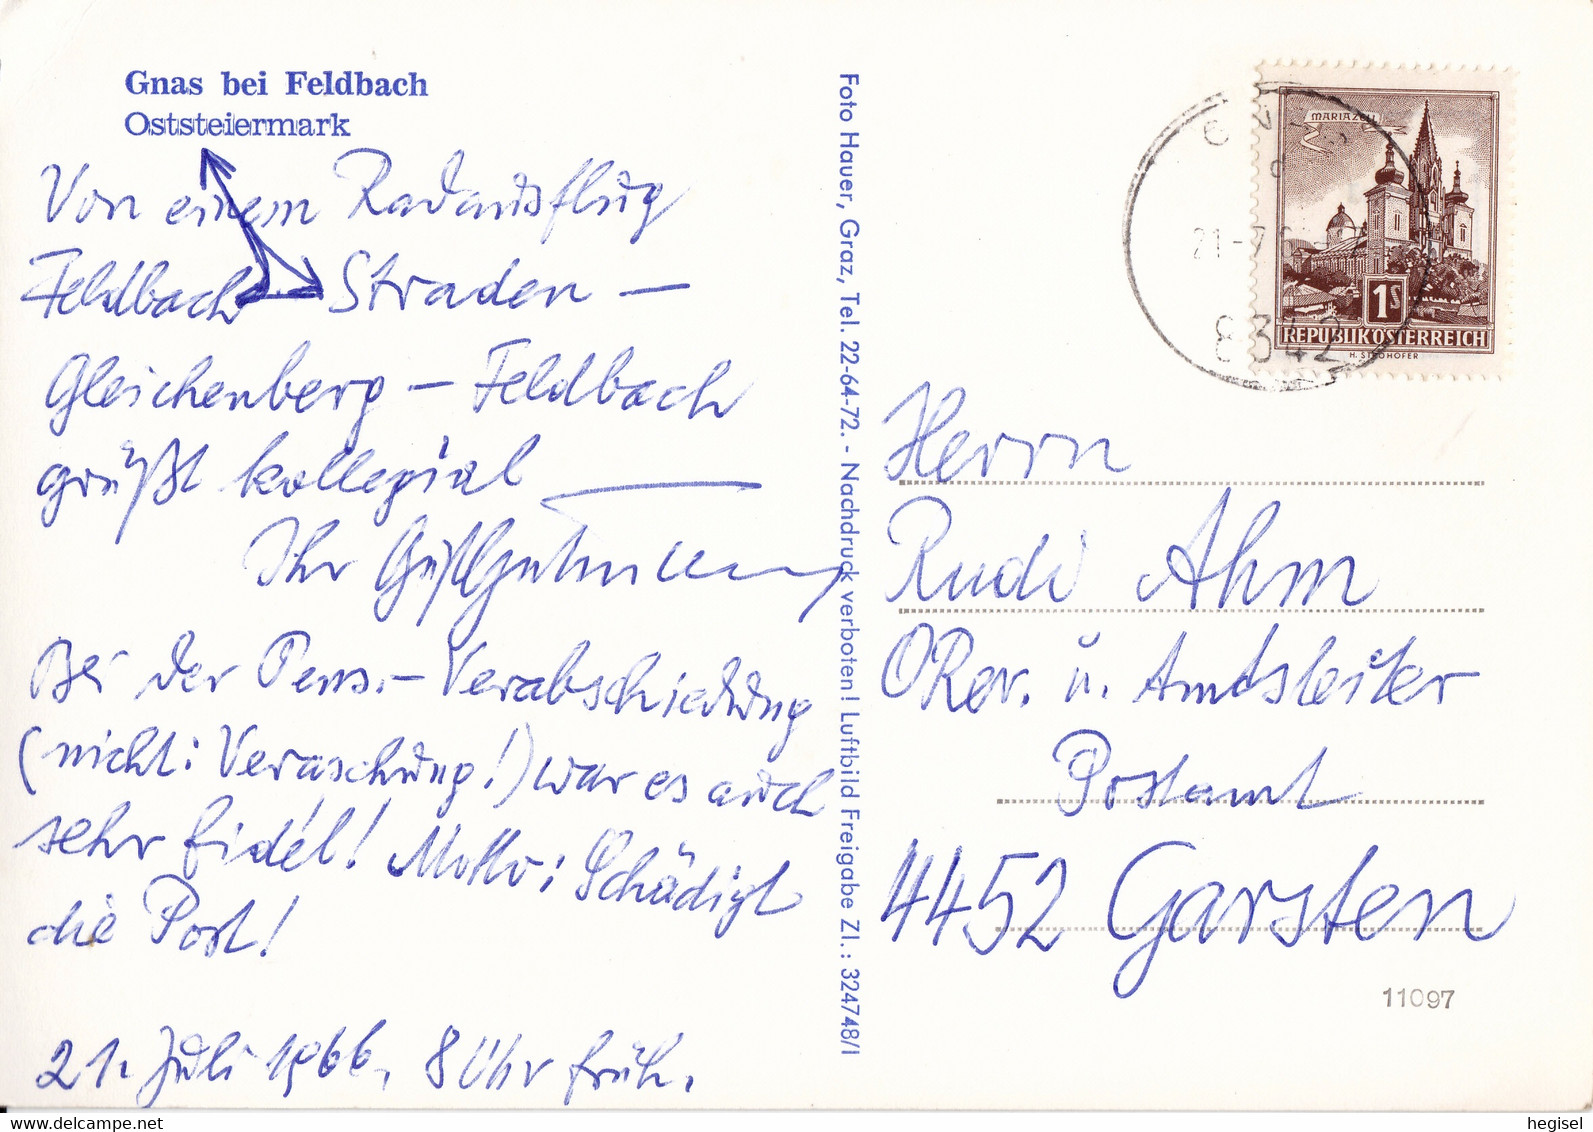 Gnas bei Feldbach
Oststeiermark
Von einem Radausflug
Feldbach – Straden –
Gleichenberg – Feldbach
grüßt kollegial
Ihr
Bei der Pens.-Verabschiedung
(nicht: Veraschung!) war es auch
sehr fidel! Motto: Schädigt
die Post!
21. Juli 1966, 8 Uhr früh.
Foto Hauer, Graz, Tel. 22-64-72. - Nachdruck verboten! Luftbild Freigabe Zl.: 324748/I
MARIAZELL
1S
REPUBLIK ÖSTERREICH
H. STROHOFER
21.-7.6
8342
Herrn
Rudi Ahm
ORev. u. Amtsleiter
Postamt
4452 Garsten
11097
www.delcampe.net
hegisel